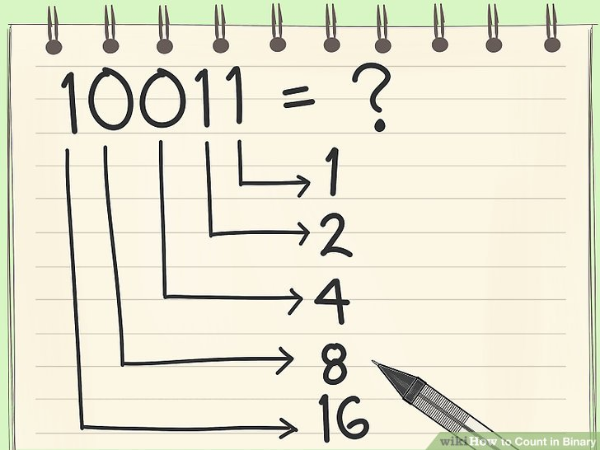 10011 = ?
1
2
4
8
16
wikiHow to Count in Binary